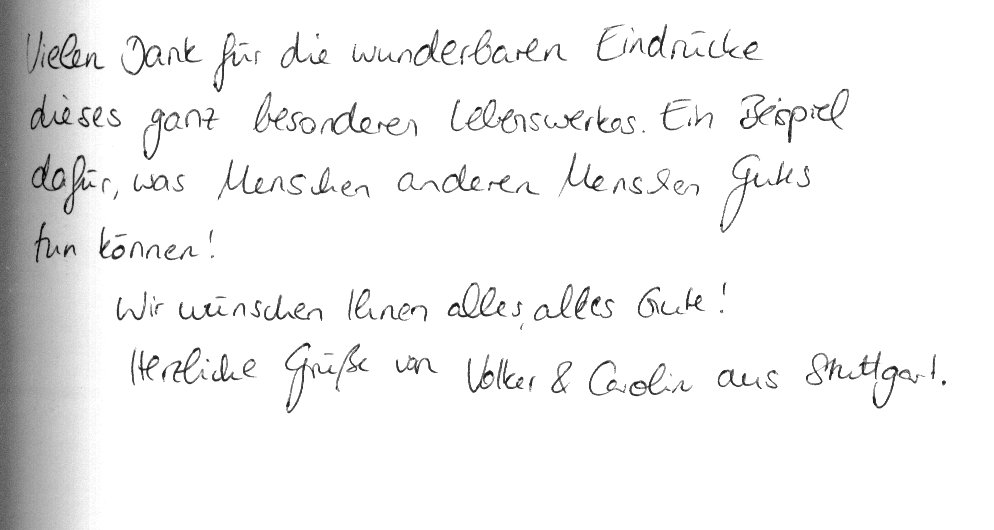 Vielen Dank für die wunderbaren Eindrücke
dieses ganz besonderen Lebenswerkes. Ein Beispiel
dafür, was Menschen anderen Menschen Gutes
tun können!
Wir wünschen Ihnen alles, alles Gute!
Herzliche Grüße von Volker & Carolin aus Stuttgart.